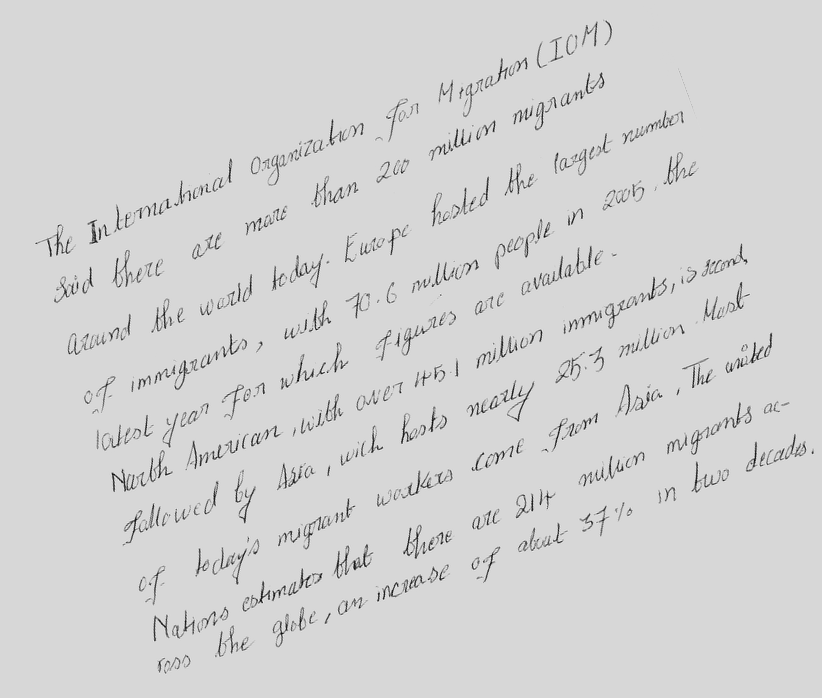 The International Organization for Migration (IOM)
said there are more than 200 million migrants
around the world today. Europe hosted the largest number
of immigrants, with 70.6 million people in 2005, the
latest year for which figures are available.
North American, with over 45.1 million immigrants, is second,
followed by Asia, wich hosts nearly 25.3 million. Most
of today's migrant workers come from Asia, The united
Nations estimates that there are 214 million migrants ac-
ross the globe, an increase of about 37% in two decades.